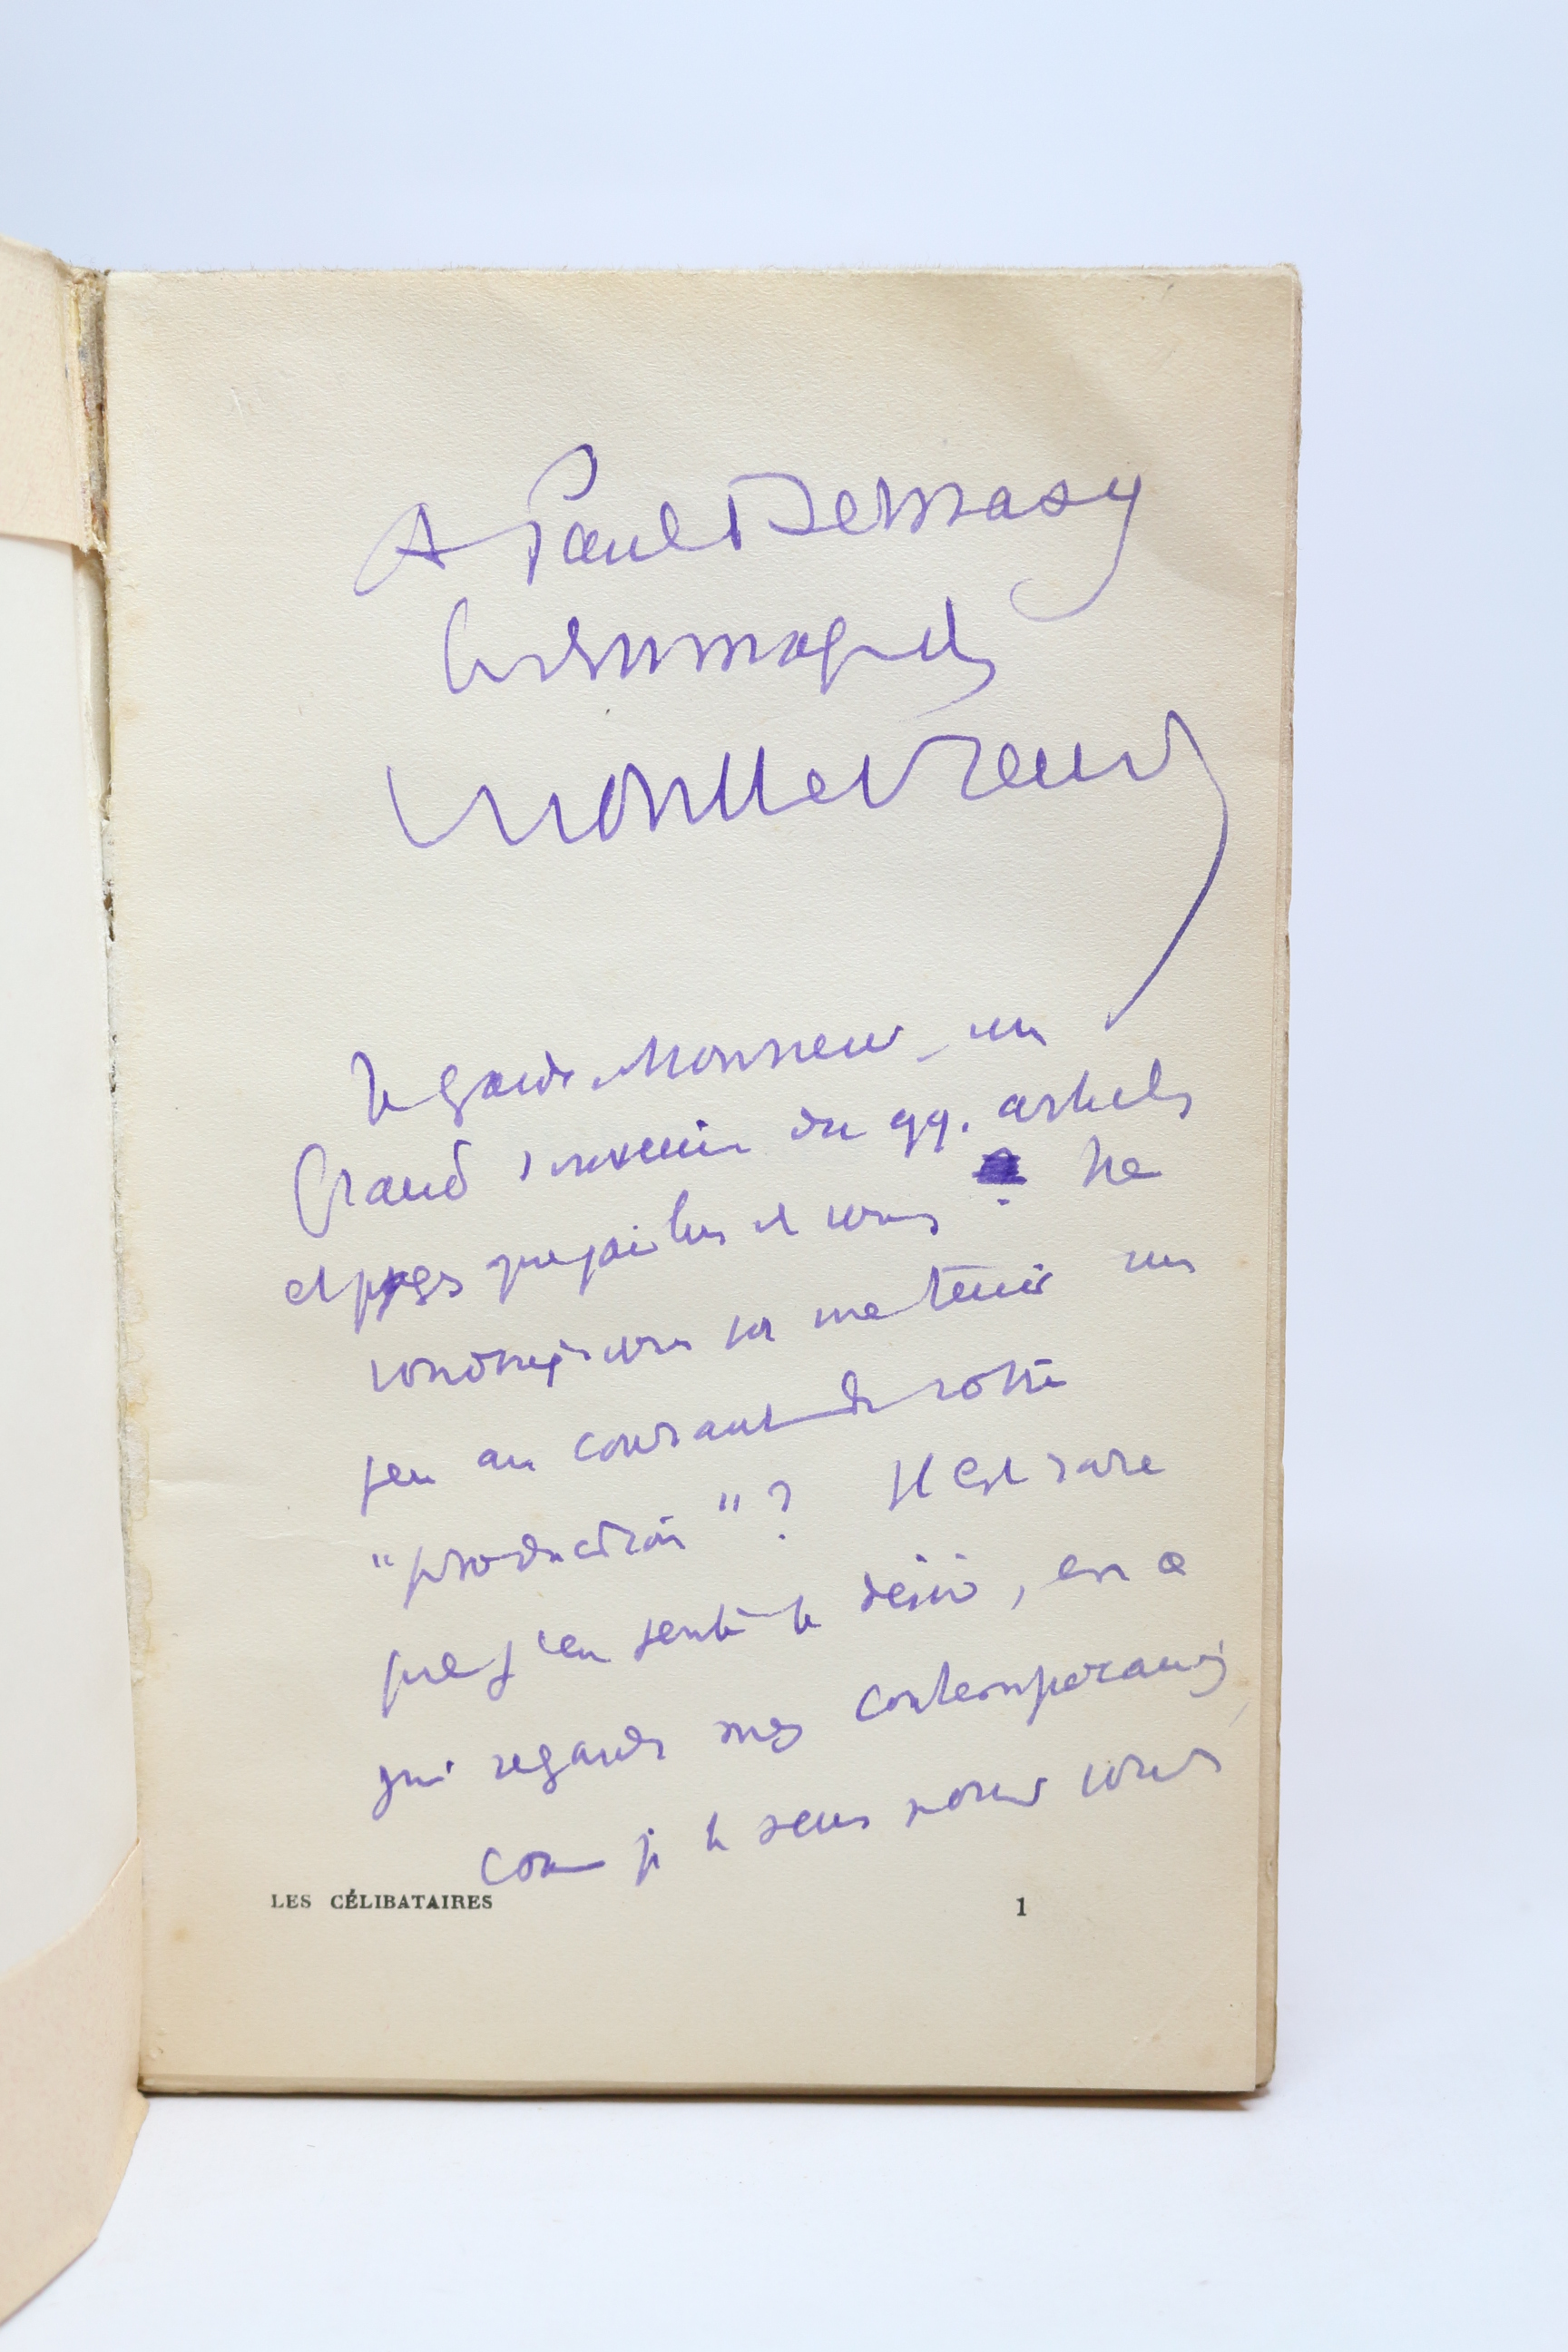 A Paul Demasy
hommage de
Montherlant
Je garde, Monsieur, un
grand souvenir de qq. articles
et pages que j'ai lus de vous. Ne
voudriez-vous pas me tenir un
peu au courant de votre
"production" ? Il est rare
que j'en sente le désir, en ce
qui regarde mes contemporains,
com je le sens pour vous
LES CÉLIBATAIRES 1